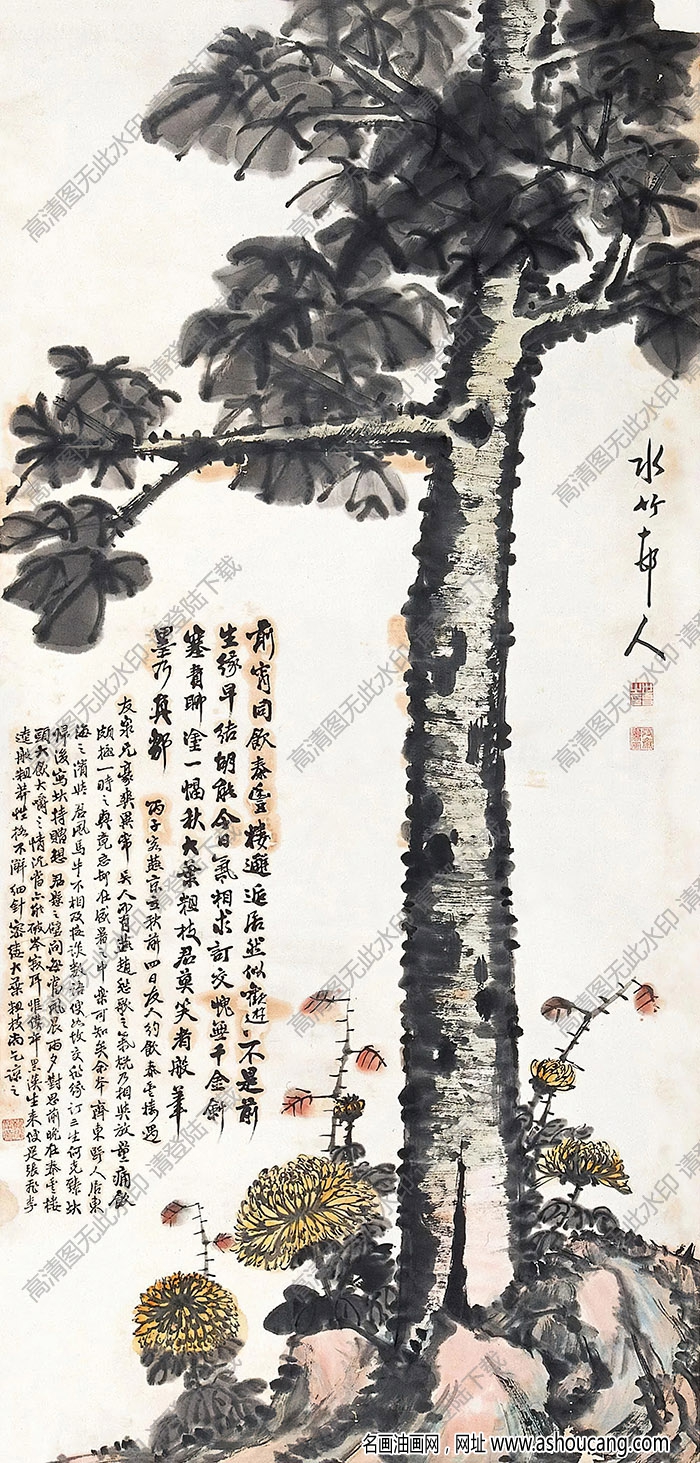 水竹邨人
前宵同飲泰豐樓邂逅居然似歡遊不是前
生緣早結胡能今日氣相求訂交愧無千金劍
塞責聊塗一幅秋大葉粗枝君莫笑者般筆
墨乃真都
丙子客燕京立秋前四日友人約飲泰豐樓遇
友泉兄豪爽異常吳人而有燕趙悲歌之氣概乃相與放量痛飲
頗極一時之興竟忘卻在感暑之中樂可知矣余本齊東野人居東
海之濱與君風馬牛不相及接淡數語便如故交
歸後寫此持贈想君
頭大飲大嚼之情況當亦能破岑寂耳
達般粗莽性格不解細針密縷大葉粗枝尚乞諒之
高清图无此水印·请登陆下载
名画油画网，网址 www.ashoucang.com